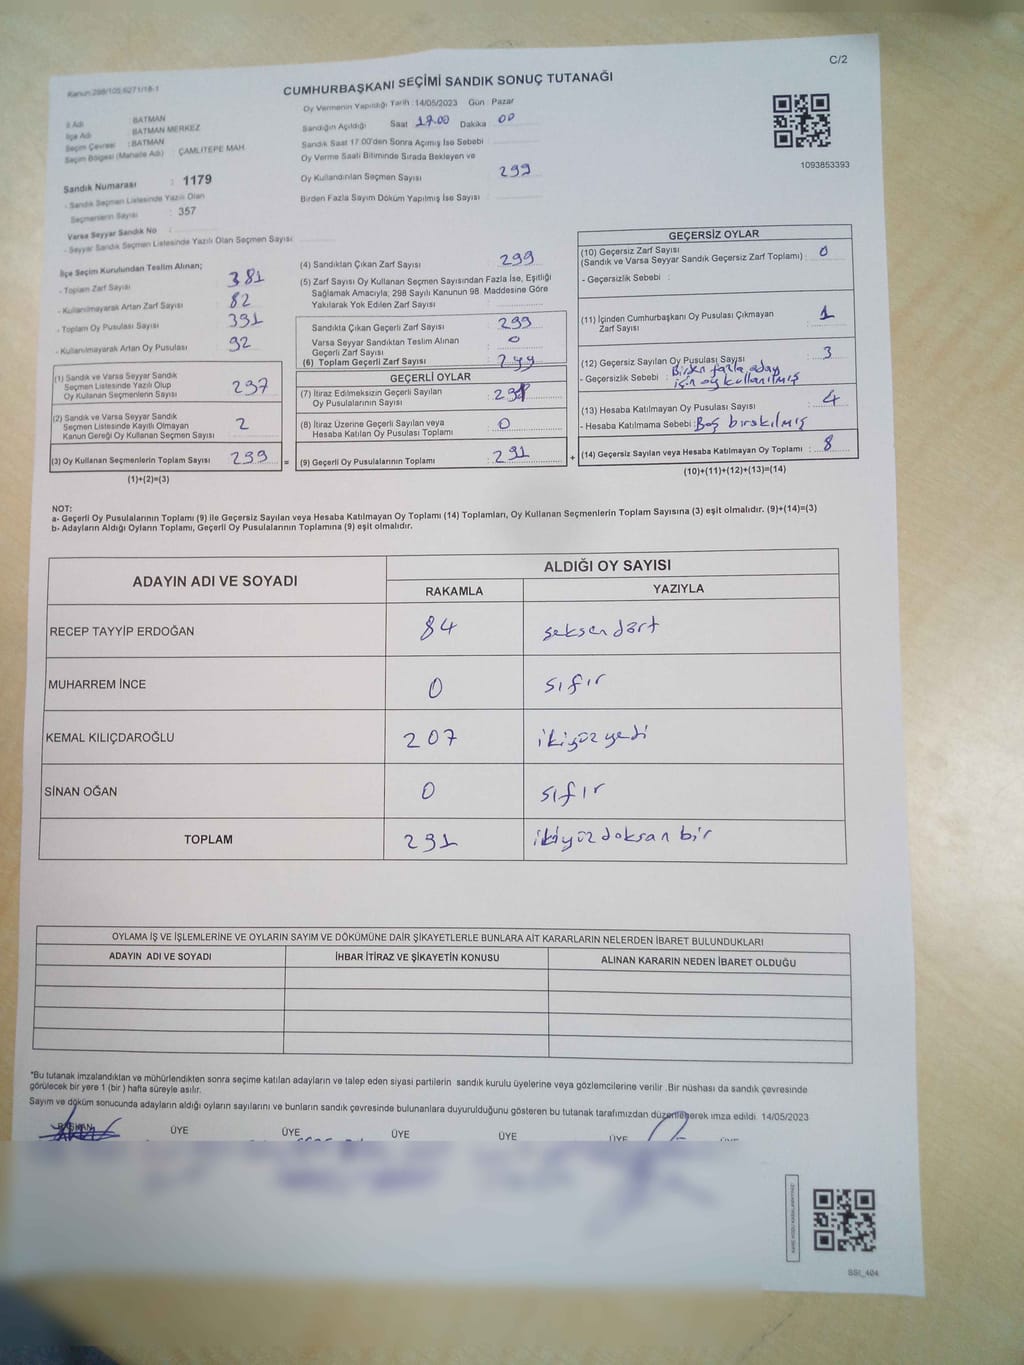 C/2
Kanun:298/105,6271/16-1
CUMHURBAŞKANI SEÇİMİ SANDIK SONUÇ TUTANAĞI
Oy Vermenin Yapıldığı Tarih :14/05/2023 Gün : Pazar
Sandığın Açıldığı Saat 17.00 Dakika 00
Sandık Saat 17:00'den Sonra Açılmış İse Sebebi
Oy Verme Saati Bitiminde Sırada Bekleyen ve
Oy Kullandırılan Seçmen Sayısı : 299
Birden Fazla Sayım Döküm Yapılmış İse Sayısı :
1093853393
İl Adı : BATMAN
İlçe Adı : BATMAN MERKEZ
Seçim Çevresi : BATMAN
Seçim Bölgesi (Mahalle Adı) : ÇAMLITEPE MAH.
Sandık Numarası : 1179
- Sandık Seçmen Listesinde Yazılı Olan
Seçmenlerin Sayısı : 357
Varsa Seyyar Sandık No :
- Seyyar Sandık Seçmen Listesinde Yazılı Olan Seçmen Sayısı :
İlçe Seçim Kurulundan Teslim Alınan;
- Toplam Zarf Sayısı : 381
- Kullanılmayarak Artan Zarf Sayısı : 82
- Toplam Oy Pusulası Sayısı : 391
- Kullanılmayarak Artan Oy Pusulası : 92
(1) Sandık ve Varsa Seyyar Sandık
Seçmen Listesinde Yazılı Olup
Oy Kullanan Seçmenlerin Sayısı : 297
(2) Sandık ve Varsa Seyyar Sandık
Seçmen Listesinde Kayıtlı Olmayan
Kanun Gereği Oy Kullanan Seçmen Sayısı : 2
(3) Oy Kullanan Seçmenlerin Toplam Sayısı : 299
(1)+(2)=(3)
(4) Sandıktan Çıkan Zarf Sayısı : 299
(5) Zarf Sayısı Oy Kullanan Seçmen Sayısından Fazla İse, Eşitliği
Sağlamak Amacıyla; 298 Sayılı Kanunun 98. Maddesine Göre
Yakılarak Yok Edilen Zarf Sayısı :
Sandıkta Çıkan Geçerli Zarf Sayısı : 299
Varsa Seyyar Sandıktan Teslim Alınan
Geçerli Zarf Sayısı : 0
(6) Toplam Geçerli Zarf Sayısı : 299
GEÇERLİ OYLAR
(7) İtiraz Edilmeksizin Geçerli Sayılan
Oy Pusulalarının Sayısı : 291
(8) İtiraz Üzerine Geçerli Sayılan veya
Hesaba Katılan Oy Pusulası Toplamı : 0
= (9) Geçerli Oy Pusulalarının Toplamı : 291
GEÇERSİZ OYLAR
(10) Geçersiz Zarf Sayısı
(Sandık ve Varsa Seyyar Sandık Geçersiz Zarf Toplamı) : 0
- Geçersizlik Sebebi :
(11) İçinden Cumhurbaşkanı Oy Pusulası Çıkmayan
Zarf Sayısı : 1
(12) Geçersiz Sayılan Oy Pusulası Sayısı : 3
- Geçersizlik Sebebi : Birden fazla aday
için oy kullanılmış
(13) Hesaba Katılmayan Oy Pusulası Sayısı : 4
- Hesaba Katılmama Sebebi : Boş bırakılmış
+ (14) Geçersiz Sayılan veya Hesaba Katılmayan Oy Toplamı : 8
(10)+(11)+(12)+(13)=(14)
NOT:
a- Geçerli Oy Pusulalarının Toplamı (9) ile Geçersiz Sayılan veya Hesaba Katılmayan Oy Toplamı (14) Toplamları, Oy Kullanan Seçmenlerin Toplam Sayısına (3) eşit olmalıdır. (9)+(14)=(3)
b- Adayların Aldığı Oyların Toplamı, Geçerli Oy Pusulalarının Toplamına (9) eşit olmalıdır.
ADAYIN ADI VE SOYADI ALDIĞI OY SAYISI
RAKAMLA YAZIYLA
RECEP TAYYİP ERDOĞAN 84 seksendört
MUHARREM İNCE 0 sıfır
KEMAL KILIÇDAROĞLU 207 ikiyüz yedi
SİNAN OĞAN 0 sıfır
TOPLAM 291 ikiyüz doksan bir
OYLAMA İŞ VE İŞLEMLERİNE VE OYLARIN SAYIM VE DÖKÜMÜNE DAİR ŞİKAYETLERLE BUNLARA AİT KARARLARIN NELERDEN İBARET BULUNDUKLARI
ADAYIN ADI VE SOYADI İHBAR İTİRAZ VE ŞİKAYETİN KONUSU ALINAN KARARIN NEDEN İBARET OLDUĞU
*Bu tutanak imzalandıktan ve mühürlendikten sonra seçime katılan adayların ve talep eden siyasi partilerin sandık kurulu üyelerine veya gözlemcilerine verilir .Bir nüshası da sandık çevresinde
görülecek bir yere 1 (bir ) hafta süreyle asılır.
Sayım ve döküm sonucunda adayların aldığı oyların sayılarını ve bunların sandık çevresinde bulunanlara duyurulduğunu gösteren bu tutanak tarafımızdan düzenlenerek imza edildi. 14/05/2023
BAŞKAN ÜYE ÜYE ÜYE ÜYE ÜYE
SSI_404